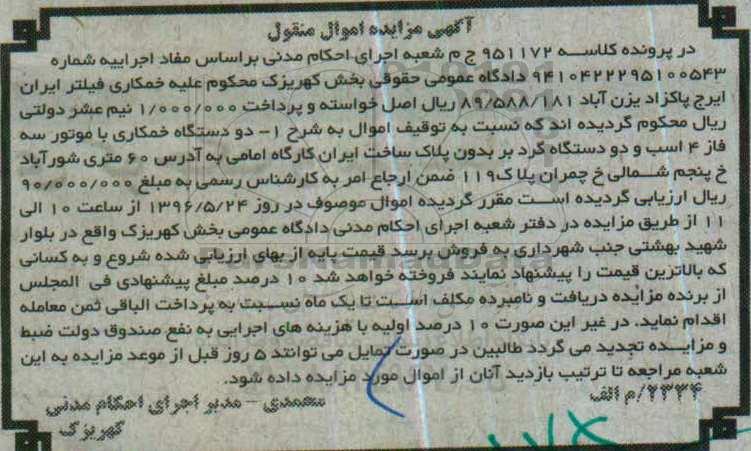 آگهی مزایده اموال منقول
در پرونده کلاسه ۹۵۱۱۷۲ ج م شعبه اجرای احکام مدنی براساس مفاد اجراییه شماره
۹۴۱۰۴۲۲۲۹۵۱۰۰۵۴۳ دادگاه عمومی حقوقی بخش کهریزک محکوم علیه خمکاری فیلتر ایران
ایرج پاکزاد یزن آباد ۸۹/۵۸۸/۱۸۱ ریال اصل خواسته و پرداخت ۱/۰۰۰/۰۰۰ نیم عشر دولتی
ریال محکوم گردیده اند که نسبت به توقیف اموال به شرح ۱- دو دستگاه خمکاری با موتور سه
فاز ۴ اسب و دو دستگاه گرد بر بدون پلاک ساخت ایران کارگاه امامی به آدرس ۶۰ متری شورآباد
خ پنجم شمالی خ چمران پلاک۱۱۹ ضمن ارجاع امر به کارشناس رسمی به مبلغ ۹۰/۰۰۰/۰۰۰
ریال ارزیابی گردیده است مقرر گردیده اموال موصوف در روز ۱۳۹۶/۵/۲۴ از ساعت ۱۰ الی
۱۱ از طریق مزایده در دفتر شعبه اجرای احکام مدنی دادگاه عمومی بخش کهریزک واقع در بلوار
شهید بهشتی جنب شهرداری به فروش برسد قیمت پایه از بهای ارزیابی شده شروع و به کسانی
که بالاترین قیمت را پیشنهاد نمایند فروخته خواهد شد ۱۰ درصد مبلغ پیشنهادی فی المجلس
از برنده مزایده دریافت و نامبرده مکلف است تا یک ماه نسبت به پرداخت الباقی ثمن معامله
اقدام نماید. در غیر این صورت ۱۰ درصد اولیه با هزینه های اجرایی به نفع صندوق دولت ضبط
و مزایده تجدید می گردد طالبین در صورت تمایل می توانند ۵ روز قبل از موعد مزایده به این
شعبه مراجعه تا ترتیب بازدید آنان از اموال مورد مزایده داده شود.
۲۳۳۴/م الف
محمدی - مدیر اجرای احکام مدنی
کهریزک